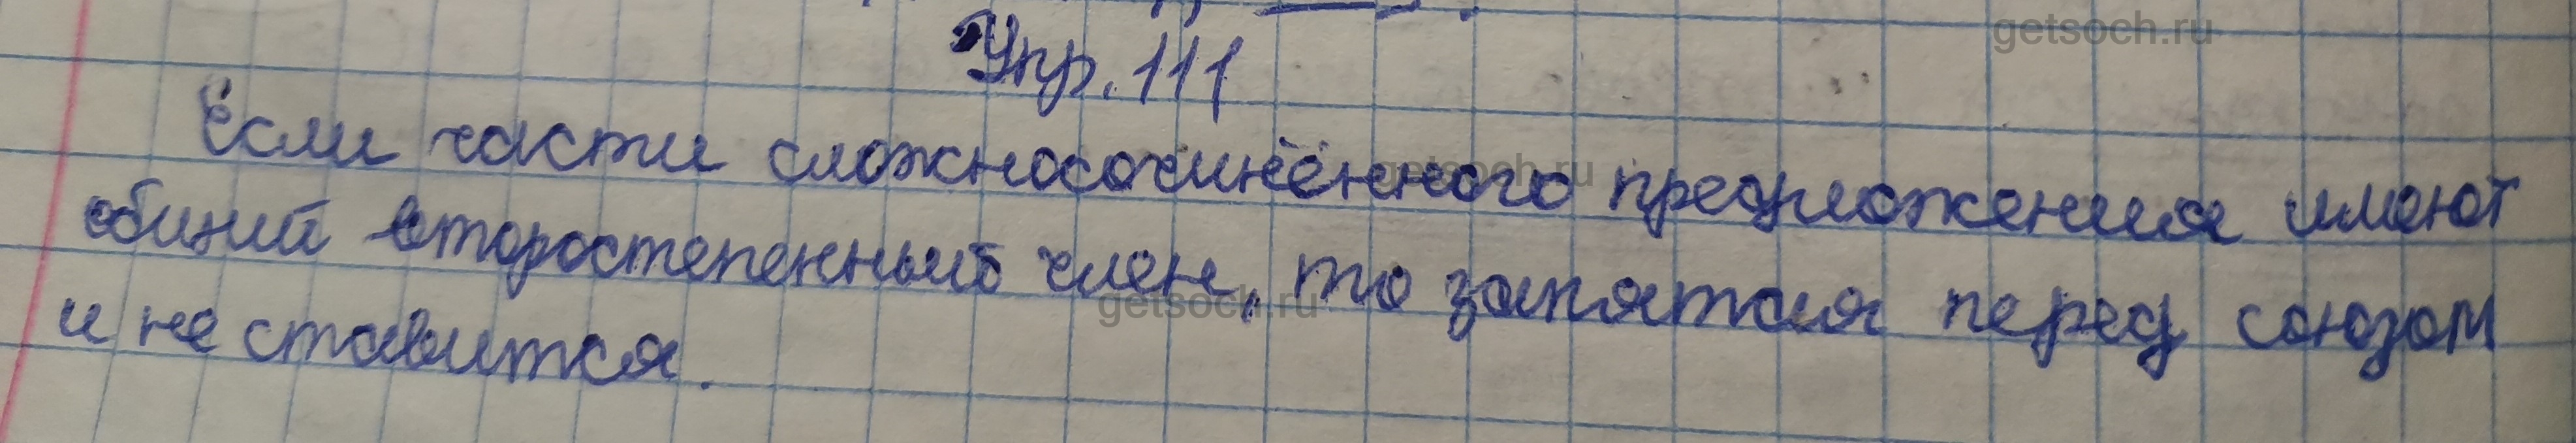 getsoch.ru
Упр. 111
Если части сложносочинённого предложения имеют
getsoch.ru
общий второстепенный член, то запятая перед союзом
getsoch.ru
и не ставится.